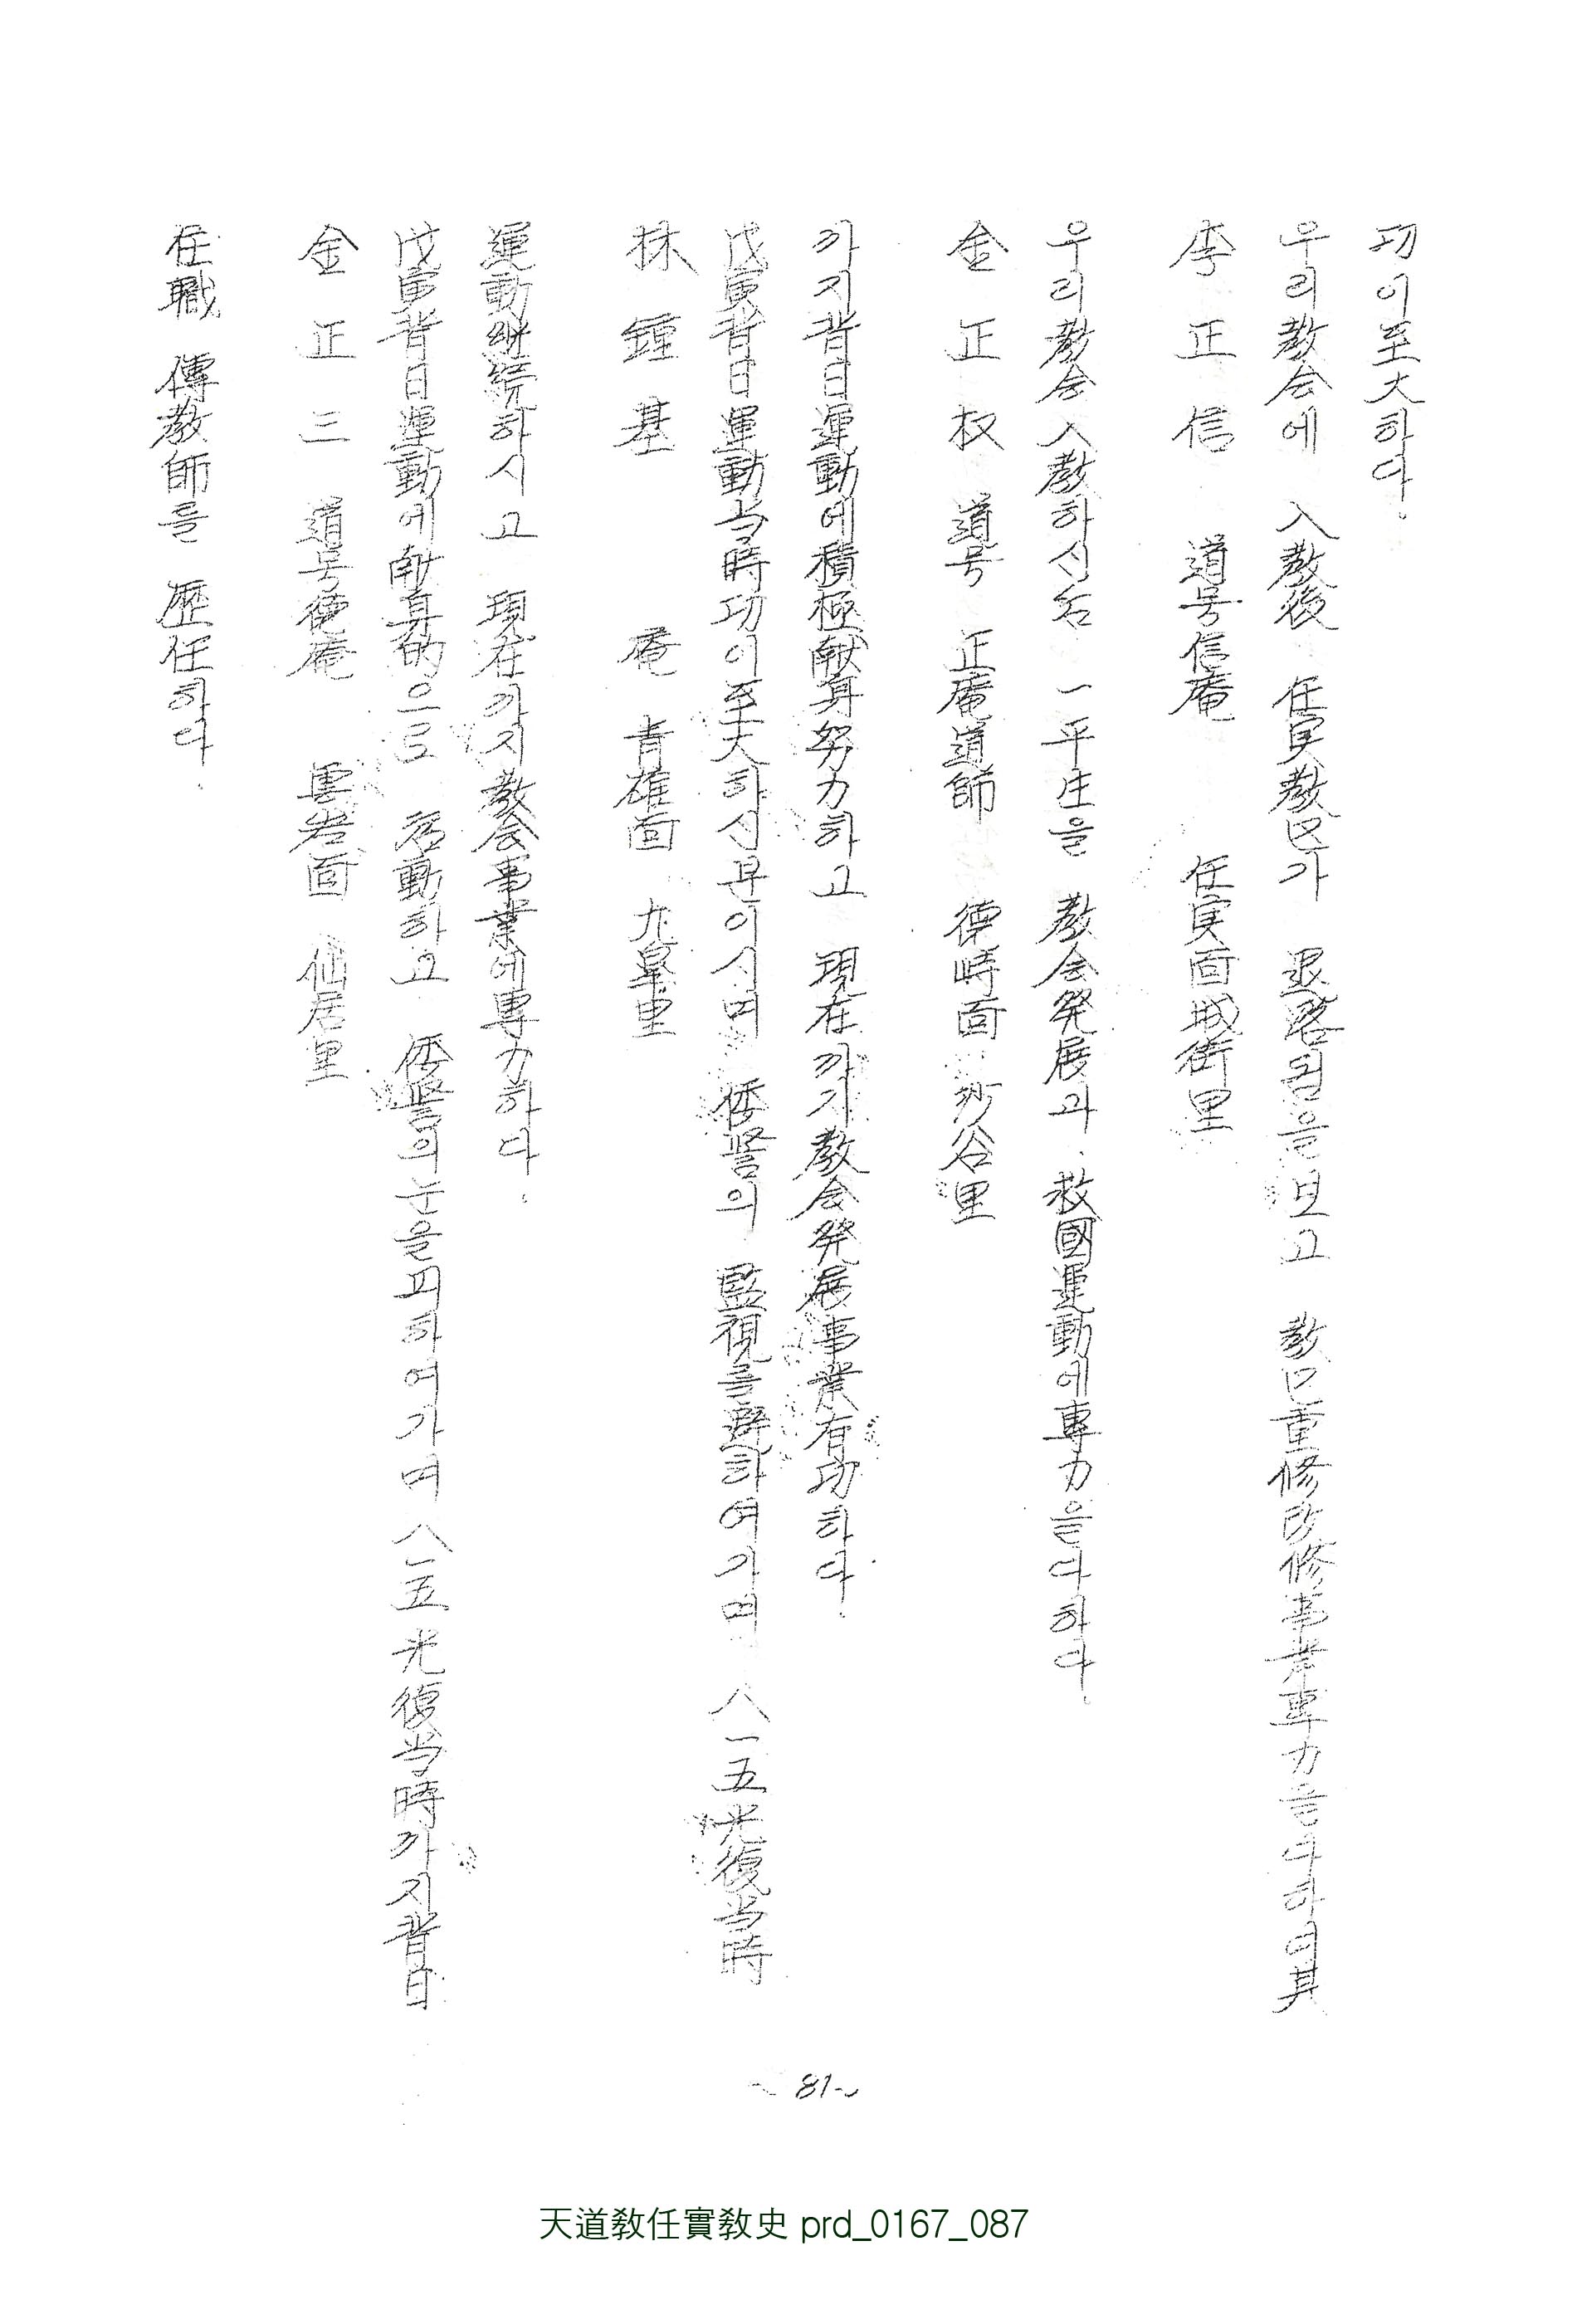 功이至大하다.
우리敎会에 入敎後 任実敎区가 退畧됨을보고 敎区重修改修事業專力을다하여其
李正信 道号信庵 任実面城街里
우리敎会入敎하신后 一平生을 敎会発展과 救國運動에專力을다하다.
金正权 道号 正庵道師 德峙面 沙谷里
까지背日運動에積極献身努力하고 現在까지敎会発展事業有功하다.
戊寅背日運動当時功이至大하신분이시며 倭警의 監視를避하여가며 八一五光復当時
林鍾基 庵 青雄面 九皐里
運動継続하시고 現在까지敎会事業에專力하다.
戊寅背日運動에献身的으로 活動하고 倭警의눈을피하여가며 八一五光復当時까지背日
金正三 道号德庵 雲岩面 仙居里
任職 傳敎師를 歷任하다.
~81~
天道敎任實敎史 prd_0167_087